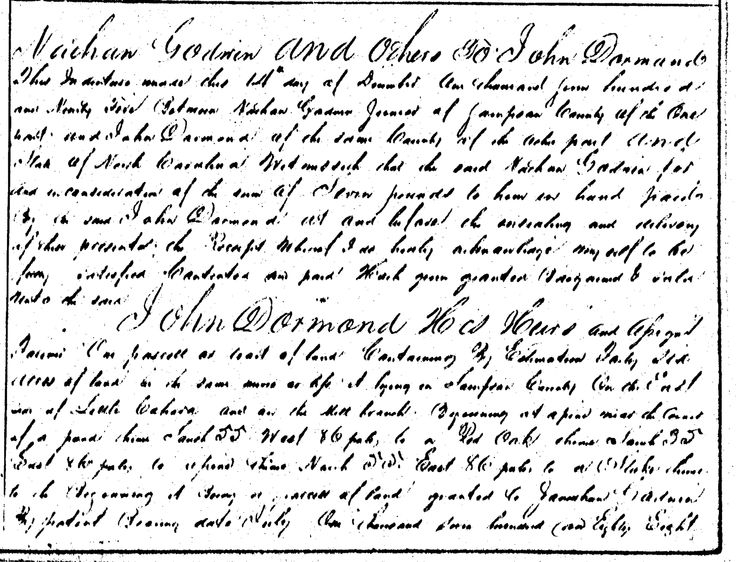 Nathan Godwin and Others To John Dormand
This Indenture made this 14th day of December One thousand seven hundred
and Ninety Between Nathan Godwin Junior of Sampson County of the One
part and John Dormond of the same County of the other part and
State of North Carolina Witnesseth that the said Nathan Godwin for
and in consideration of the sum of Seven pounds to him in hand paid
By the said John Dormond at and before the ensealing and delivery
of these presents the Receipt Whereof I do hereby acknowledge myself to be
fully satisfied Contented and paid Hath given granted Bargained &
unto the said
John Dormond His Heirs and Assigns
One parcell or tract of land Containing By Estimation Forty Six
acres of land be the same more or less it lying in Sampson County On the East
side of Little Cohera and on the Mill branch Beginning at a pine near the
of a pond thence South 55 West 86 poles to a Red Oak thence South 35
East 86 poles to thence North 55 East 86 poles to a Stake thence
to the Beginning it Being a parcell of land granted to
By patent Bearing date July One thousand seven hundred and Eighty Eight